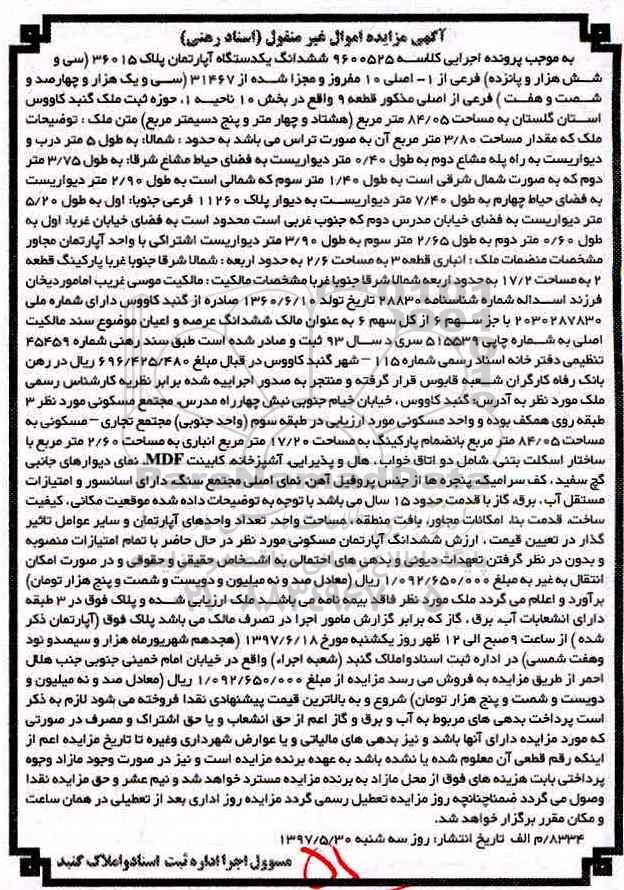 آگهی مزایده اموال غیر منقول (اسناد رهنی)
به موجب پرونده اجرایی کلاسه ۹۶۰۰۵۲۵ ششدانگ یکدستگاه آپارتمان پلاک ۳۶۰۱۵ (سی و
شش هزار و پانزده) فرعی از ۱- اصلی ۱۰ مفروز و مجزا شده از ۳۱۴۶۷ (سی و یک هزار و چهارصد و
شصت و هفت ) فرعی از اصلی مذکور قطعه ۹ واقع در بخش ۱۰ ناحیه ۱، حوزه ثبت ملک گنبد کاووس
استان گلستان به مساحت ۸۴/۰۵ متر مربع (هشتاد و چهار متر و پنج دسیمتر مربع) متن ملک : توضیحات
ملک که مقدار مساحت ۳/۸۰ متر مربع آن به صورت تراس می باشد به حدود : شمالا: به طول ۵ متر درب و
دیواریست به راه پله مشاع دوم به طول ۰/۴۰ متر دیواریست به فضای حیاط مشاع شرقا: به طول ۳/۷۵ متر
دوم که به صورت شمال شرقی است به طول ۱/۴۰ متر سوم که شمالی است به طول ۲/۹۰ متر دیواریست
به فضای حیاط چهارم به طول ۷/۴۰ متر دیواریست به دیوار پلاک ۱۱۲۶۰ فرعی جنوبا: اول به طول ۵/۲۰
متر دیواریست به فضای خیابان مدرس دوم که جنوب غربی است محدود است به فضای خیابان غربا: اول به
طول ۰/۶۰ متر دوم به طول ۲/۶۵ متر سوم به طول ۳/۹۰ متر دیواریست اشتراکی با واحد آپارتمان مجاور
مشخصات منضمات ملک : انباری قطعه ۳ به مساحت ۲/۶ به حدود اربعه : شمالا شرقا جنوبا غربا پارکینگ قطعه
۲ به مساحت ۱۷/۲ به حدود اربعه شمالا شرقا جنوبا غربا مشخصات مالکیت : مالکیت موسی غریب اماموردیخان
فرزند اسداله شماره شناسنامه ۲۸۸۳۰ تاریخ تولد ۱۳۶۰/۶/۱۰ صادره از گنبد کاووس دارای شماره ملی
۲۰۳۰۲۸۷۸۳۰ با جز سهم ۶ از کل سهم ۶ به عنوان مالک ششدانگ عرصه و اعیان موضوع سند مالکیت
اصلی به شماره چاپی ۵۱۵۵۳۹ سری د سال ۹۳ ثبت و صادر شده است طبق سند رهنی شماره ۴۵۴۵۹
تنظیمی دفتر خانه اسناد رسمی شماره ۱۱۵ – شهر گنبد کاووس در قبال مبلغ ۶۹۶/۴۲۵/۴۸۰ ریال در رهن
بانک رفاه کارگران شعبه قابوس قرار گرفته و منتجر به صدور اجراییه شده برابر نظریه کارشناس رسمی
ملک مورد نظر به آدرس: گنبد کاووس ، خیابان خیام جنوبی نبش چهارراه مدرس، مجتمع مسکونی مورد نظر ۳
طبقه روی همکف بوده و واحد مسکونی مورد ارزیابی در طبقه سوم (واحد جنوبی) مجتمع تجاری – مسکونی به
مساحت ۸۴/۰۵ متر مربع بانضمام پارکینگ به مساحت ۱۷/۲۰ متر مربع انباری به مساحت ۲/۶۰ متر مربع با
ساختار اسکلت بتنی، شامل دو اتاق خواب ، هال و پذیرایی، آشپزخانه، کابینت MDF، نمای دیوارهای جانبی
گچ سفید ، کف سرامیک، پنجره ها از جنس پروفیل آهن، نمای اصلی مجتمع سنگ، دارای آسانسور و امتیازات
مستقل آب ، برق، گاز با قدمت حدود ۱۵ سال می باشد با توجه به توضیحات داده شده موقعیت مکانی ، کیفیت
ساخت، قدمت بنا، امکانات مجاور، بافت منطقه ، مساحت واحد، تعداد واحدهای آپارتمان و سایر عوامل تاثیر
گذار در تعیین قیمت ، ارزش ششدانگ آپارتمان مسکونی مورد نظر در حال حاضر با تمام امتیازات منصوبه
و بدون در نظر گرفتن تعهدات دیونی و بدهی های احتمالی به اشخاص حقیقی و حقوقی و در صورت امکان
انتقال به غیر به مبلغ ۱/۰۹۲/۶۵۰/۰۰۰ ریال (معادل صد و نه میلیون و دویست و شصت و پنج هزار تومان)
برآورد و اعلام می گردد ملک مورد نظر فاقد بیمه نامه می باشد ملک ارزیابی شده و پلاک فوق در ۳ طبقه
دارای انشعابات آب، برق ، گاز که برابر گزارش مامور اجرا در تصرف مالک می باشد پلاک فوق (آپارتمان ذکر
شده ) از ساعت ۹ صبح الی ۱۲ ظهر روز یکشنبه مورخ ۱۳۹۷/۶/۱۸ (هجدهم شهریورماه هزار و سیصدو نود
وهفت شمسی) در اداره ثبت اسنادواملاک گنبد (شعبه اجراء) واقع در خیابان امام خمینی جنوبی جنب هلال
احمر از طریق مزایده به فروش می رسد مزایده از مبلغ ۱/۰۹۲/۶۵۰/۰۰۰ ریال (معادل صد و نه میلیون و
دویست و شصت و پنج هزار تومان) شروع و به بالاترین قیمت پیشنهادی نقدا فروخته می شود لازم به ذکر
است پرداخت بدهی های مربوط به آب و برق و گاز اعم از حق انشعاب و یا حق اشتراک و مصرف در صورتی
که مورد مزایده دارای آنها باشد و نیز بدهی های مالیاتی و یا عوارض شهرداری وغیره تا تاریخ مزایده اعم از
اینکه رقم قطعی آن معلوم شده یا نشده باشد به عهده برنده مزایده است و نیز در صورت وجود مازاد وجوه
پرداختی بابت هزینه های فوق از محل مازاد به برنده مزایده مسترد خواهد شد و نیم عشر و حق مزایده نقدا
وصول می گردد ضمناچنانچه روز مزایده تعطیل رسمی گردد مزایده روز اداری بعد از تعطیلی در همان ساعت
و مکان مقرر برگزار خواهد شد.
۸۳۳۴/م الف تاریخ انتشار: روز سه شنبه ۱۳۹۷/۵/۳۰
مسوول اجرا اداره ثبت اسنادواملاک گنبد